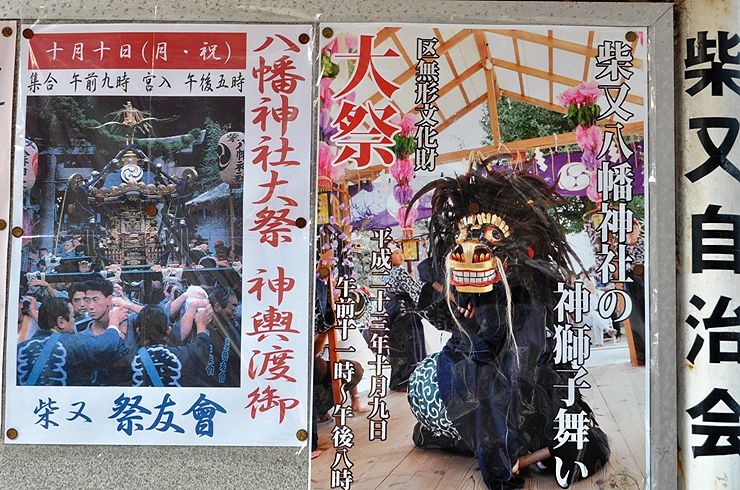 十月十日(月・祝)
集合 午前九時 宮入 午後五時
八幡神社大祭 神輿渡御
柴又 祭友會
柴又八幡神社の
神獅子舞い
区無形文化財
大祭
平成二十三年十月九日
午前十一時〜午後八時
柴又自治会